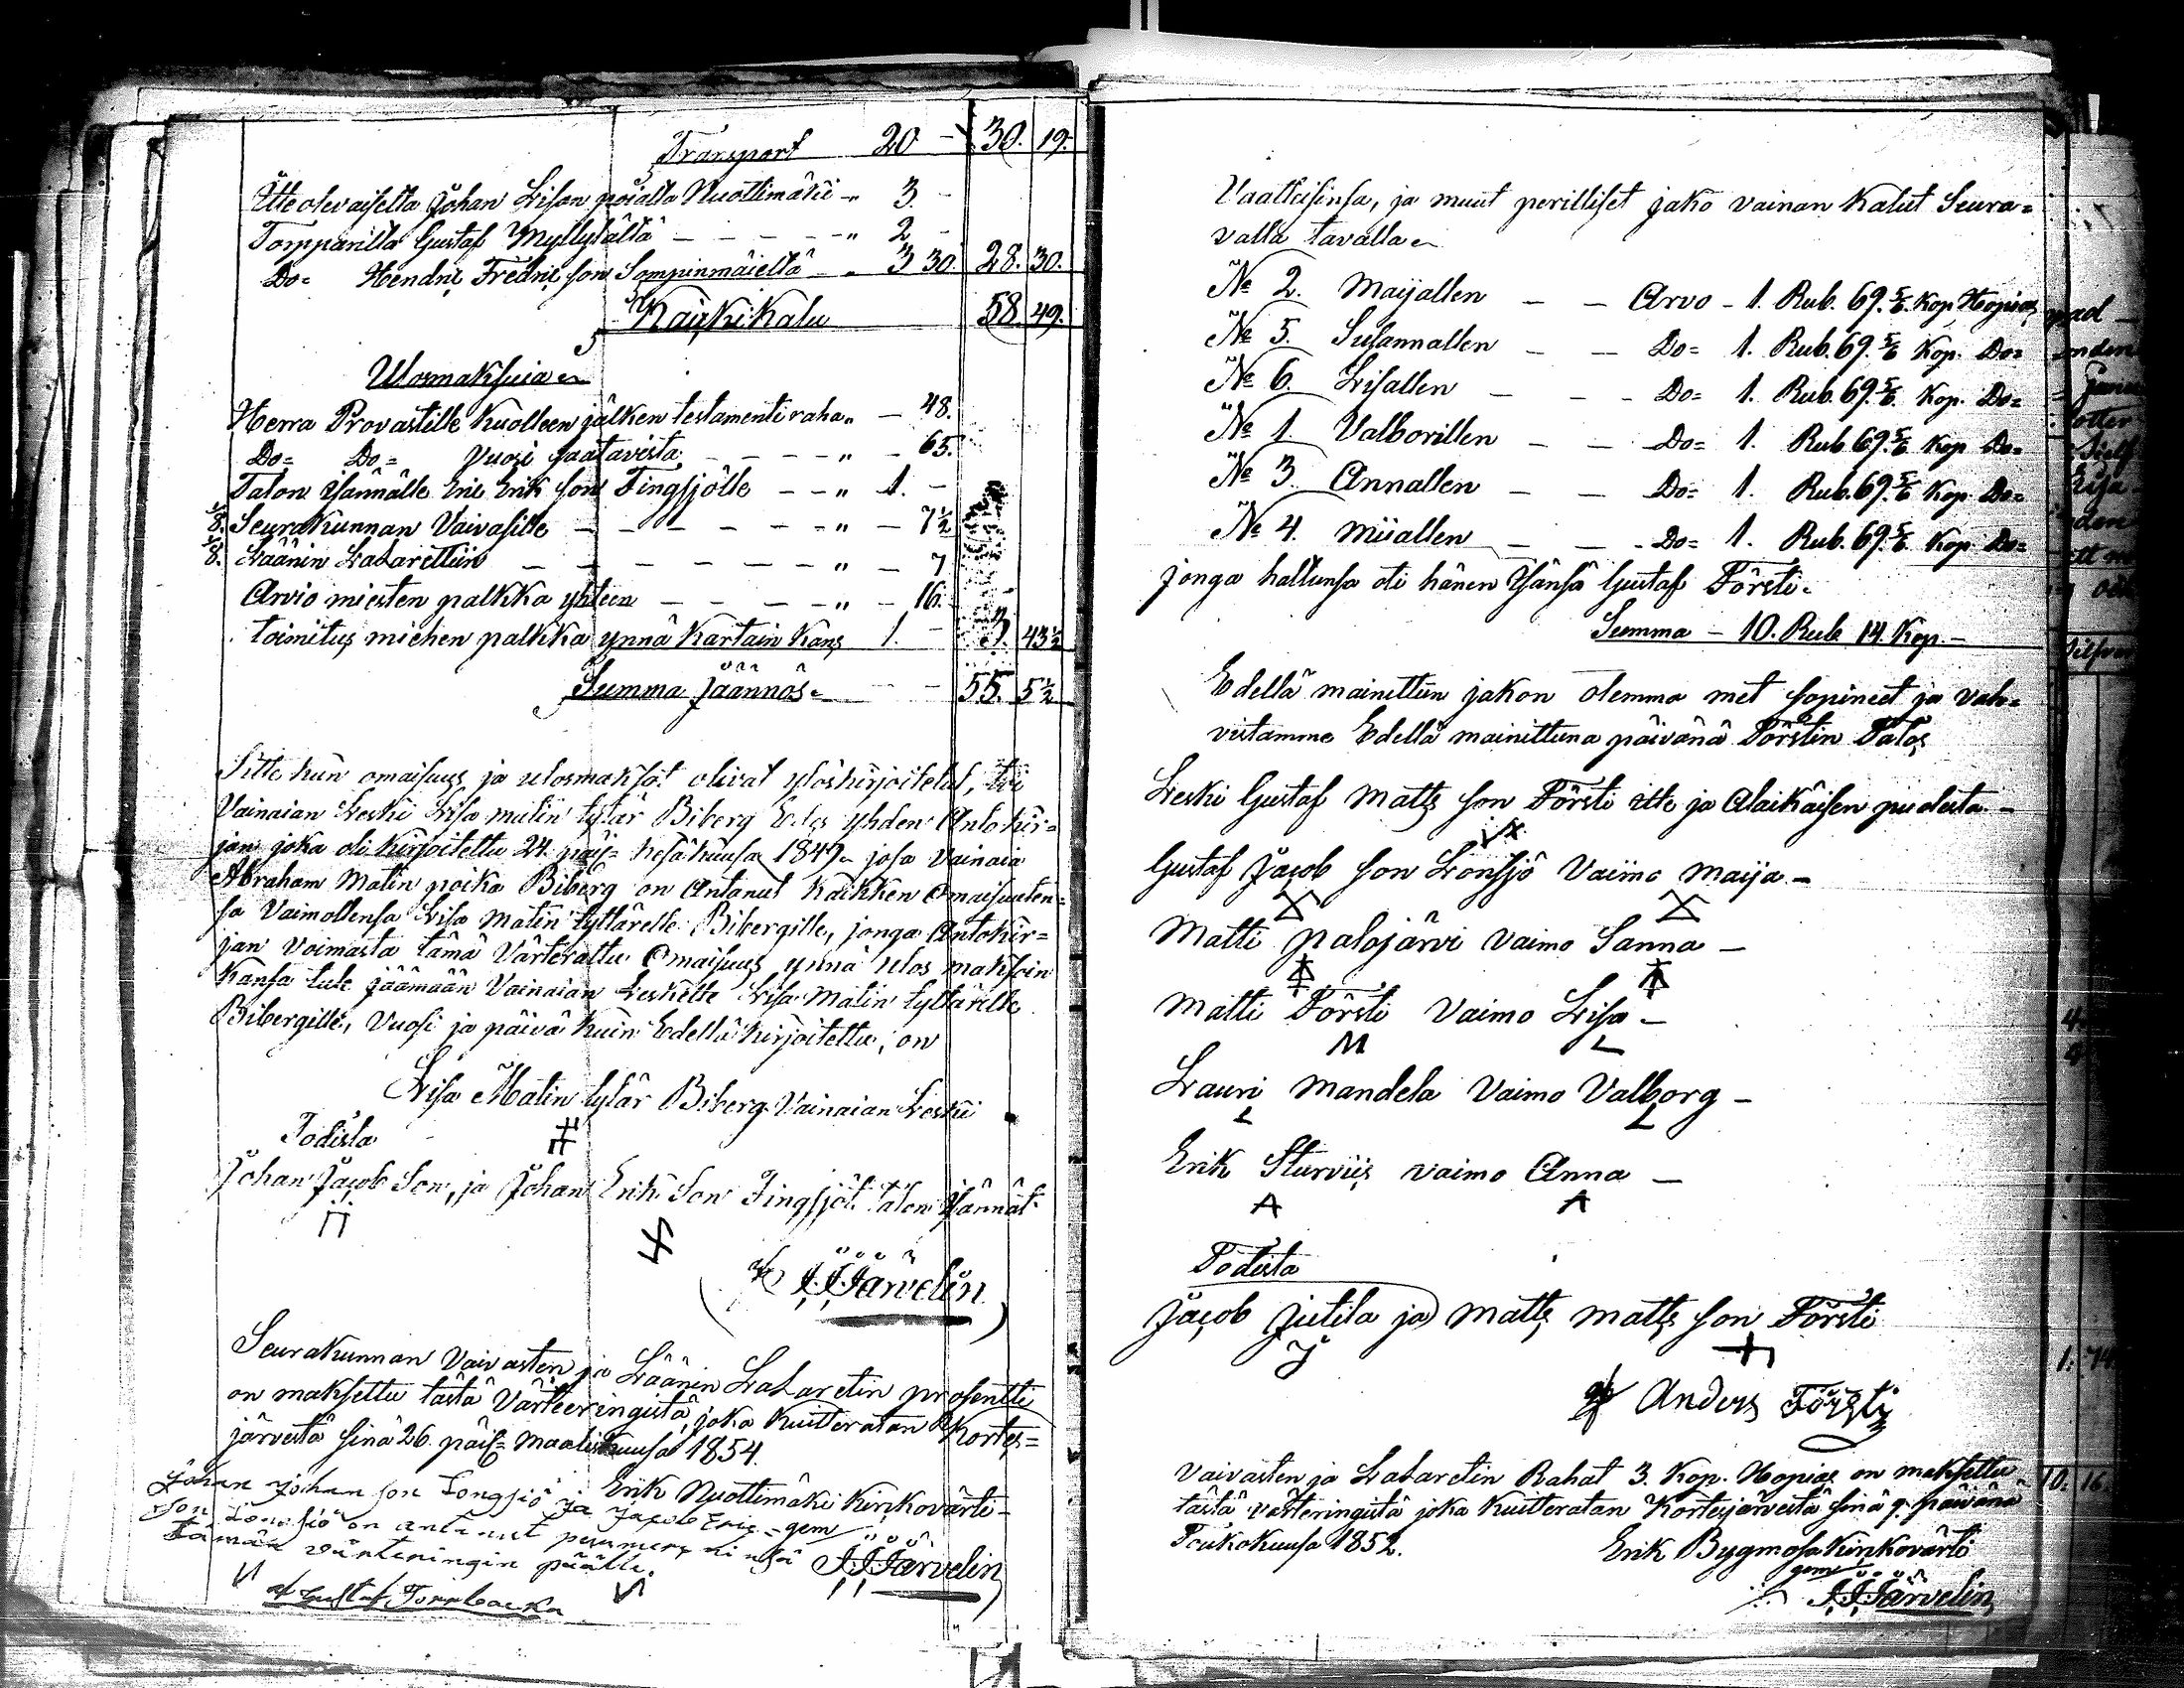 Transport 20 - 30. 19.
Itteolevaiselta Johan Lisan pojalta Nuottimäki " 3. -
Torpparilta Gustaf Myllylältä - - - - " 2 -
Do= Hendric Fredric son Sompinmäieltä - " 3 30. 28. 30.
Kaikki Kalu 58. 49.
Ulosmaksuia
Herra Provastille Kuolleen jälken testamenti raha " - 48.
Do= Do= Vuosi saatavista - - - - " - 65.
Talon Isännälle Eric Erik son Tingsjölle - - " 1. -
1/8. Seurakunnan Vaivasille - - - - - - " - 7½
1/8. Läänin Lasarettiin - - - - - - " - 7
Arvio miesten palkka yhteen - - - - " - 16.
toimitus miehen palkka ynnä Kartain Kans 1. - 3. 43½
Summa jäännös - - 55. 5½
Sitte kuin omaisuus ja ulosmaksot olivat ylöskirjoitetut, toi
Vainaian Leski Lisa matin tytär Biberg Edes yhden Antokir=
jan joka oli kirjoitettu 24. päiv= kesäkuusa 1849. josa Vainaia
Abraham Matin poika Biberg on Antanut kaikken Omaisuuten=
sa Vaimollensa Lisa Matin tyttärelle Bibergille, jonga Antokir=
jan voimasta tämä Värterattu Omaisuus ynnä ulos maksoin
Kansa tule jäämään Vainaian Leskelle Lisa Matin tyttärelle
Bibergille, Vuosi ja päivä kuin Edellä kirjoitettu, on
Lisa Matin tytär Biberg Vainaian Leski
Todista
Johan Jacob Son, ja Johan Erik Son Tingsjö talon Isännät
J.J. Järvelin
Seurakunnan Vaivasten ja Läänin Lasaretin prosentti
on maksettu tästä Värteeringistä, joka Kuitteratan Kortes=
järvestä sinä 26. päiv= Maaliskuusa 1854.
Erik Nuottimäki Kirkovärti
gem J.J. Järvelin
Johan Johan son Longsiö ja Jacob Eric=
son Longsiö on antanut
tämän värteringin päälle.
af Gustaf Torpbacka
Vaatteisinsa, ja muut perilliset jako vainan kalut Seura=
valla tavalla
No 2. Maijallen - - Arvo - 1. Rub. 69.5/6. Kop. Hopias
No 5. Susannallen - - Do= 1. Rub. 69.5/6 Kop. Do=
No 6. Lisallen - - Do= 1. Rub. 69.5/6. Kop. Do=
No 1. Valborillen - - Do= 1. Rub 69.5/6 Kop Do=
No 3. Annallen - - Do= 1. Rub. 69.5/6 Kop. Do=
No 4. Miiallen - - Do= 1. Rub. 69.5/6. Kop. Do=
jonga haltunsa oti hänen Isänsä Gustaf Försti.
Summa - 10. Rub 14. Kop. -
Edellä mainittun jakon olemma met sopineet ja vah=
vistamme Edellä mainittuna päivänä Förstin Talos
Leski Gustaf Matts son Försti itte ja Alaikäisen puolesta -
Gustaf Jacob son Lonsjö Vaiimo Maija -
Matti palojärvi Vaimo Sanna -
Matti Försti Vaimo Lisa -
M L
Lauri Mandela Vaimo Valborg -
L L
Erik Sturviis vaimo Anna -
A A
Todista
Jacob Jutila ja Matts Matts son Försti
J
af Anders Försti
Vaivasten ja Lasaretin Rahat 3. Kop. Hopias on maksettu
tästä värteringistä joka Kuitteratan Kortesjärvestä sinä 9. päivänä
Toukokuusa 1852.
Erik Bygmosa Kirkovärti
gem J.J. Järvelin